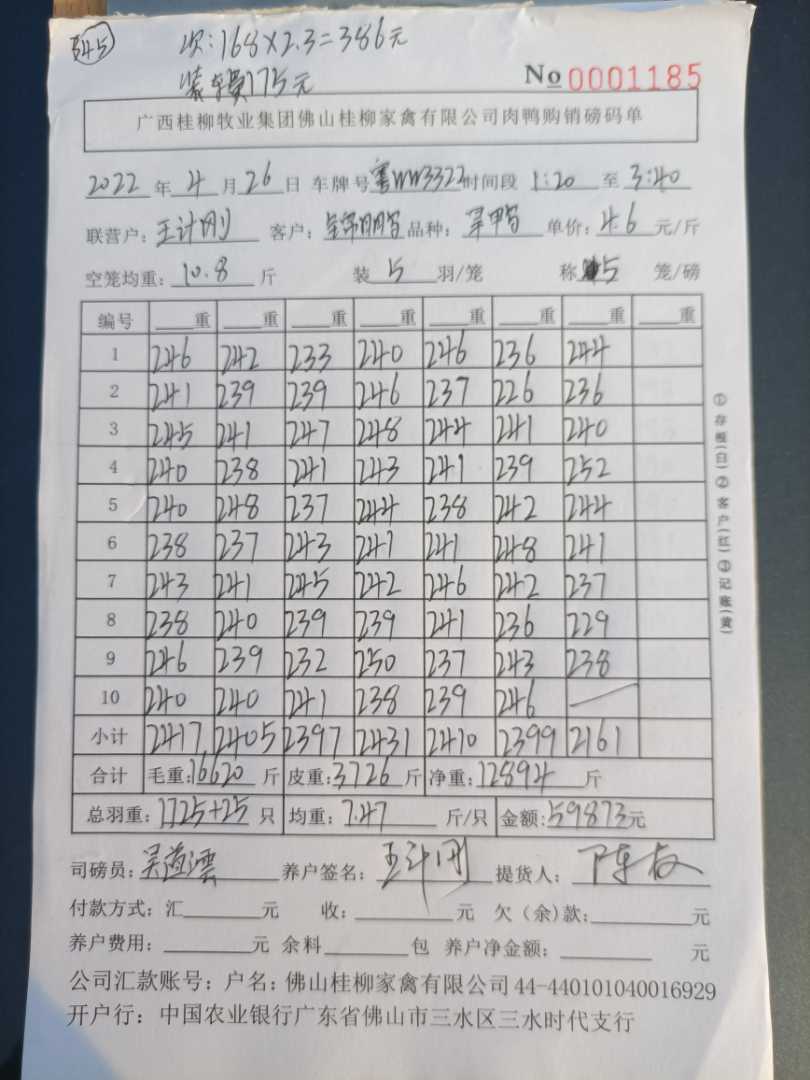 345
次:168×2.3=386元
装车费175元
No 0001185
广西桂柳牧业集团佛山桂柳家禽有限公司肉鸭购销磅码单
2022年4月26日 车牌号粤WW3322时间段 1:20 至 3:40
联营户:王计刚 客户: 品种: 单价:4.6元/斤
空笼均重:10.8斤 装5羽/笼 称5笼/磅
编号 重 重 重 重 重 重 重 重
1 246 242 233 240 246 236 244
2 241 239 239 246 237 226 236
3 245 241 247 248 244 241 240
4 240 238 241 243 241 239 252
5 240 248 237 244 238 242 244
6 238 237 243 241 241 248 241
7 243 241 245 242 246 242 237
8 238 240 239 239 241 236 229
9 246 239 232 250 237 243 238
10 240 240 241 238 239 246 —
小计 2417 2405 2397 2431 2410 2399 2161
合计 毛重:16620斤 皮重:3726斤 净重:12894斤
总羽重:1725+25只 均重:7.47斤/只 金额:59873元
司磅员:吴道云 养户签名:王计刚 提货人:
付款方式:汇 元 收: 元 欠(余)款: 元
养户费用: 元 余料 包 养户净金额: 元
公司汇款账号:户名:佛山桂柳家禽有限公司44-440101040016929
开户行:中国农业银行广东省佛山市三水区三水时代支行
①存根(白)②客户(红)③记账(黄)